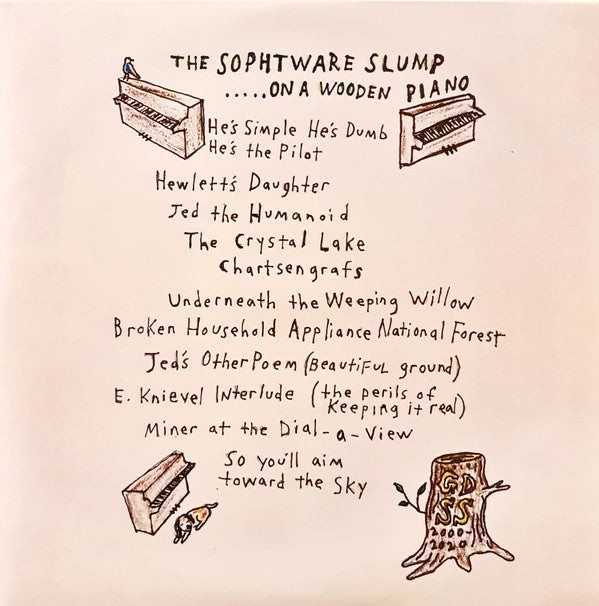 THE SOPHTWARE SLUMP
.....ON A WOODEN PIANO
He's Simple He's Dumb
He's the Pilot
Hewlett's Daughter
Jed the Humanoid
The Crystal Lake
Chartsengrafs
Underneath the Weeping Willow
Broken Household Appliance National Forest
Jed's Other Poem (Beautiful ground)
E. Knievel Interlude (the perils of
Keeping it real)
Miner at the Dial-a-View
So you'll aim
toward the Sky
GD
SS
2000-
2020